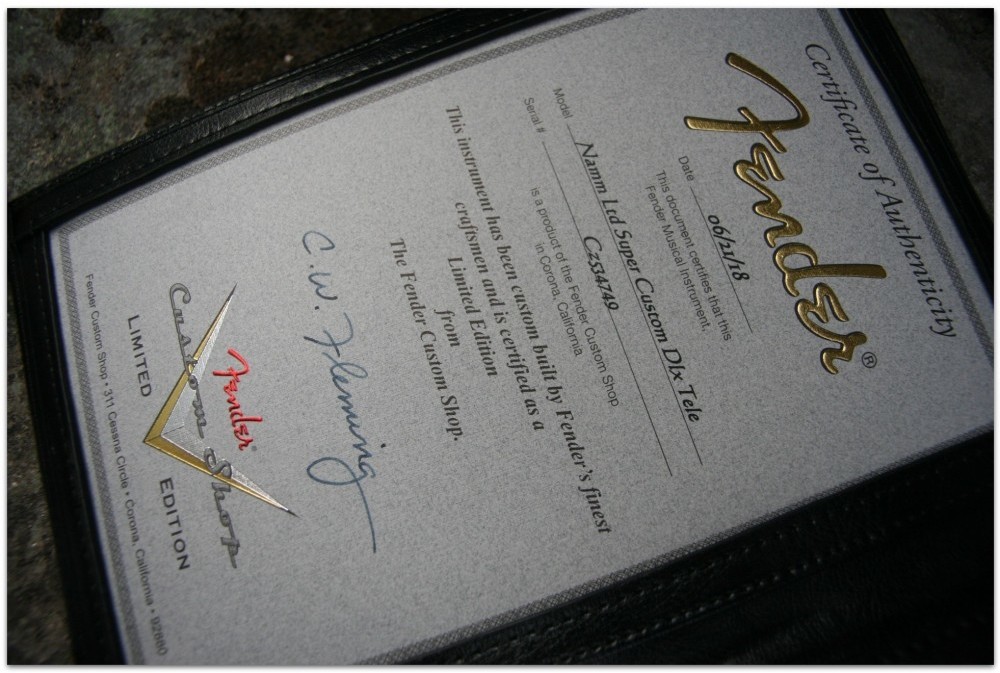 Certificate of Authenticity
Fender®
Date 06/21/18
This document certifies that this
Fender Musical Instrument,
Model Namm Ltd Super Custom Dlx Tele
Serial # Cz534749
is a product of the Fender Custom Shop
in Corona, California
This instrument has been custom built by Fender's finest
craftsmen and is certified as a
Limited Edition
from
The Fender Custom Shop.
C.W. Fleming
Fender®
Custom Shop
LIMITED EDITION
Fender Custom Shop • 311 Cessna Circle • Corona, California • 92880